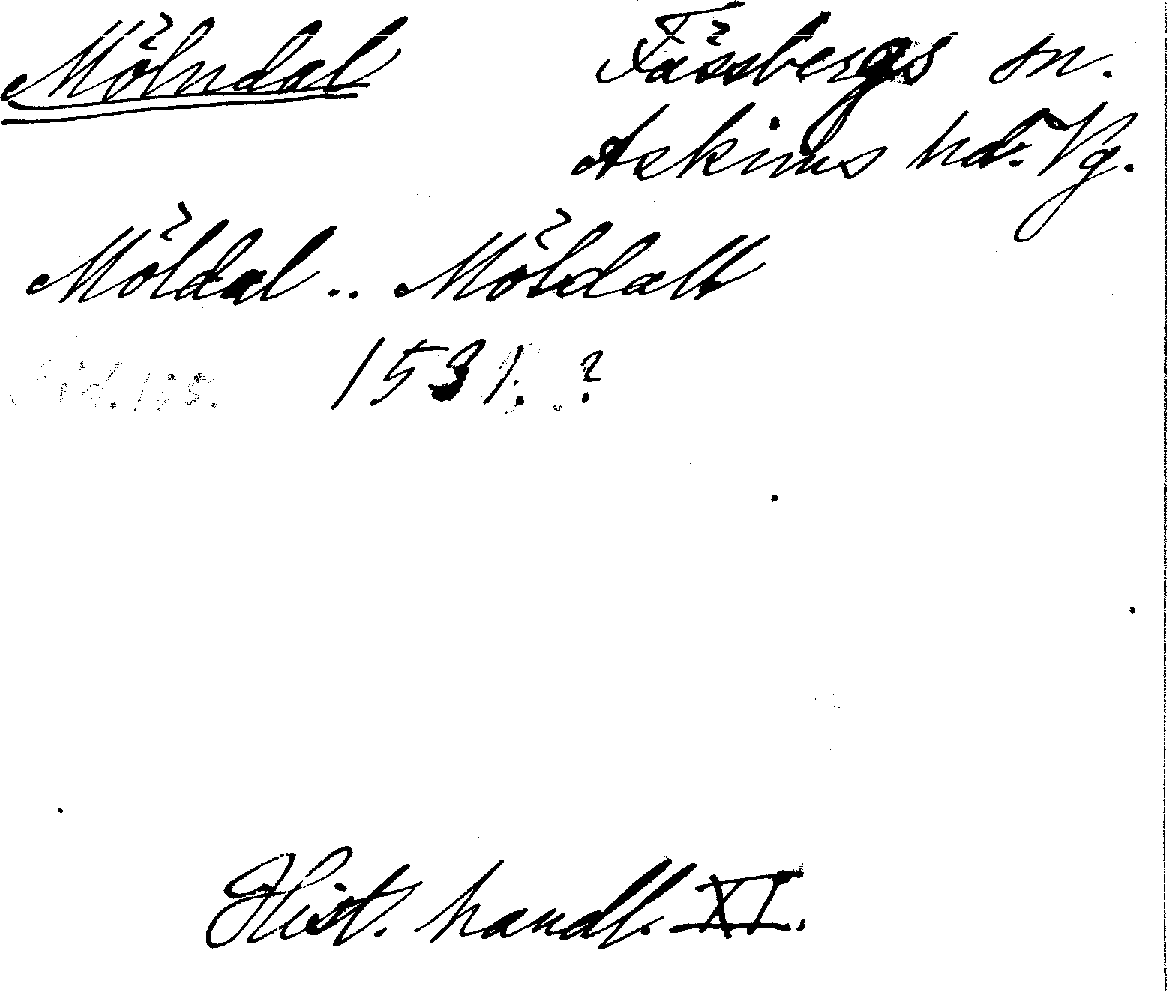 Mölndal Fässbergs sn.
Askims hd. Vg.
Möldal .. Möldall
1531. ?
Hist. handl. XI.